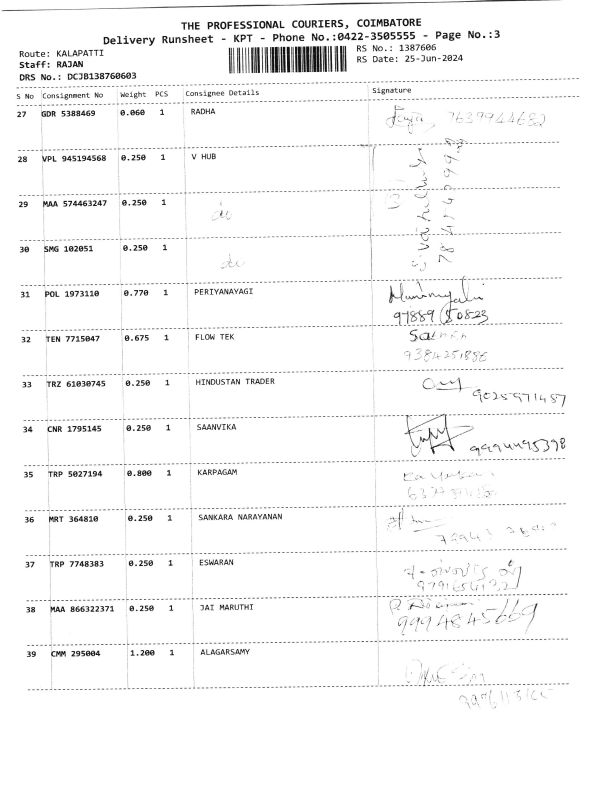 THE PROFESSIONAL COURIERS, COIMBATORE
Delivery Runsheet - KPT - Phone No.:0422-3505555 - Page No.:3
Route: KALAPATTI
RS No.: 1387606
Staff: RAJAN
RS Date: 25-Jun-2024
DRS No.: DCJB138760603
S No Consignment No Weight PCS Consignee Details Signature
27 GDR 5388469 0.060 1 RADHA 7639944682
28 VPL 945194568 0.250 1 V HUB
29 MAA 574463247 0.250 1
30 SMG 102051 0.250 1
31 POL 1973110 0.770 1 PERIYANAYAGI
97889 50823
32 TEN 7715047 0.675 1 FLOW TEK
9384251886
33 TRZ 61030745 0.250 1 HINDUSTAN TRADER
9025971457
34 CNR 1795145 0.250 1 SAANVIKA
9994495398
35 TRP 5027194 0.800 1 KARPAGAM
36 MRT 364810 0.250 1 SANKARA NARAYANAN
37 TRP 7748383 0.250 1 ESWARAN
38 MAA 866322371 0.250 1 JAI MARUTHI
9994845669
39 CMM 295004 1.200 1 ALAGARSAMY